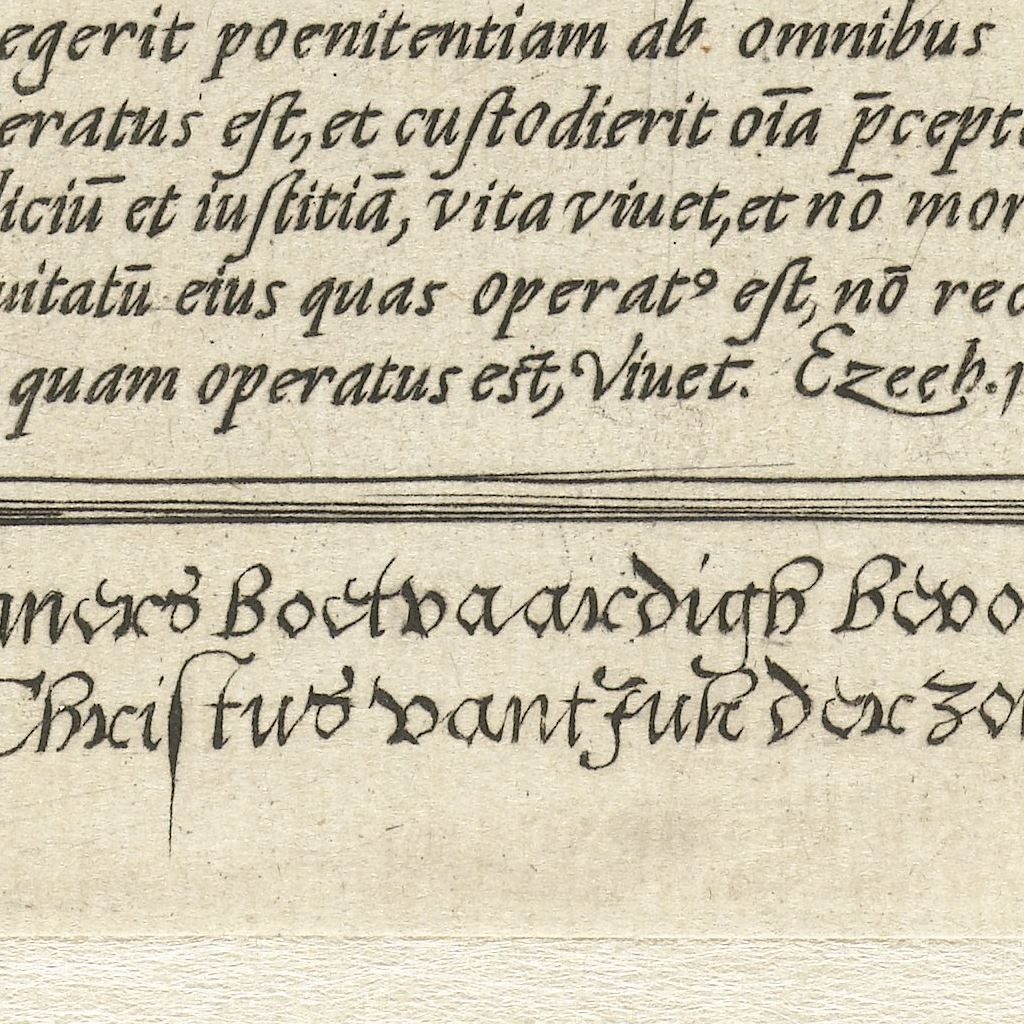 egerit poenitentiam ab omnibus
eratus est, et custodierit oīa p̄cept
diciū et iustitiā, vita viuet, et nō mor
uitatū eius quas operatꝰ est, nō rec
quam operatus est, Viuet. Ezeeh.
ners Boetvaardigh Bevo
Christus vant Juk der zon